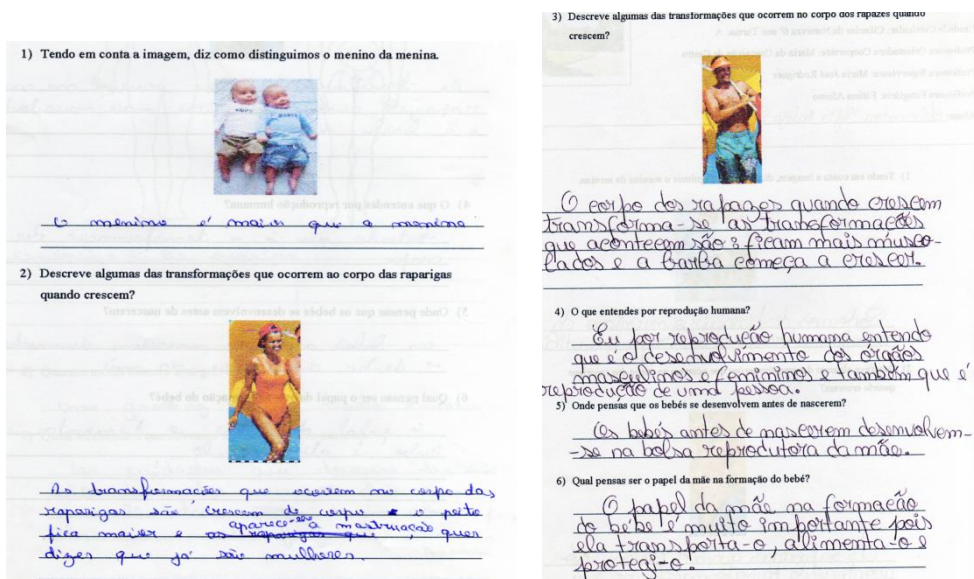 1) Tendo em conta a imagem, diz como distinguimos o menino da menina.
O menino é maior que a menina
2) Descreve algumas das transformações que ocorrem ao corpo das raparigas
quando crescem?
As transformações que ocorrem no corpo das
raparigas são crescem de corpo o peito
fica maior e aparece-lhe a mastruacão, quer
dizer que já são mulheres.
3) Descreve algumas das transformações que ocorrem no corpo dos rapazes quando
crescem?
O corpo dos rapazes quando crescem
transforma-se as transformações
que acontecem são: ficam mais músco-
lados e a barba começa a crescer.
4) O que entendes por reprodução humana?
Eu por reprodução humana entendo
que é o desenhvolvimento dos órgãos
masculinos e femininos e também que é
reprodução de uma pessoa.
5) Onde pensas que os bebés se desenvolvem antes de nascerem?
Os bebés antes de nascerem desenvolvem-
-se na bolsa reprodutora da mãe.
6) Qual pensas ser o papel da mãe na formação do bebé?
O papel da mãe na formação
do bebé é muito importante pois
ela transporta-o, alimenta-o e
protegi-o.